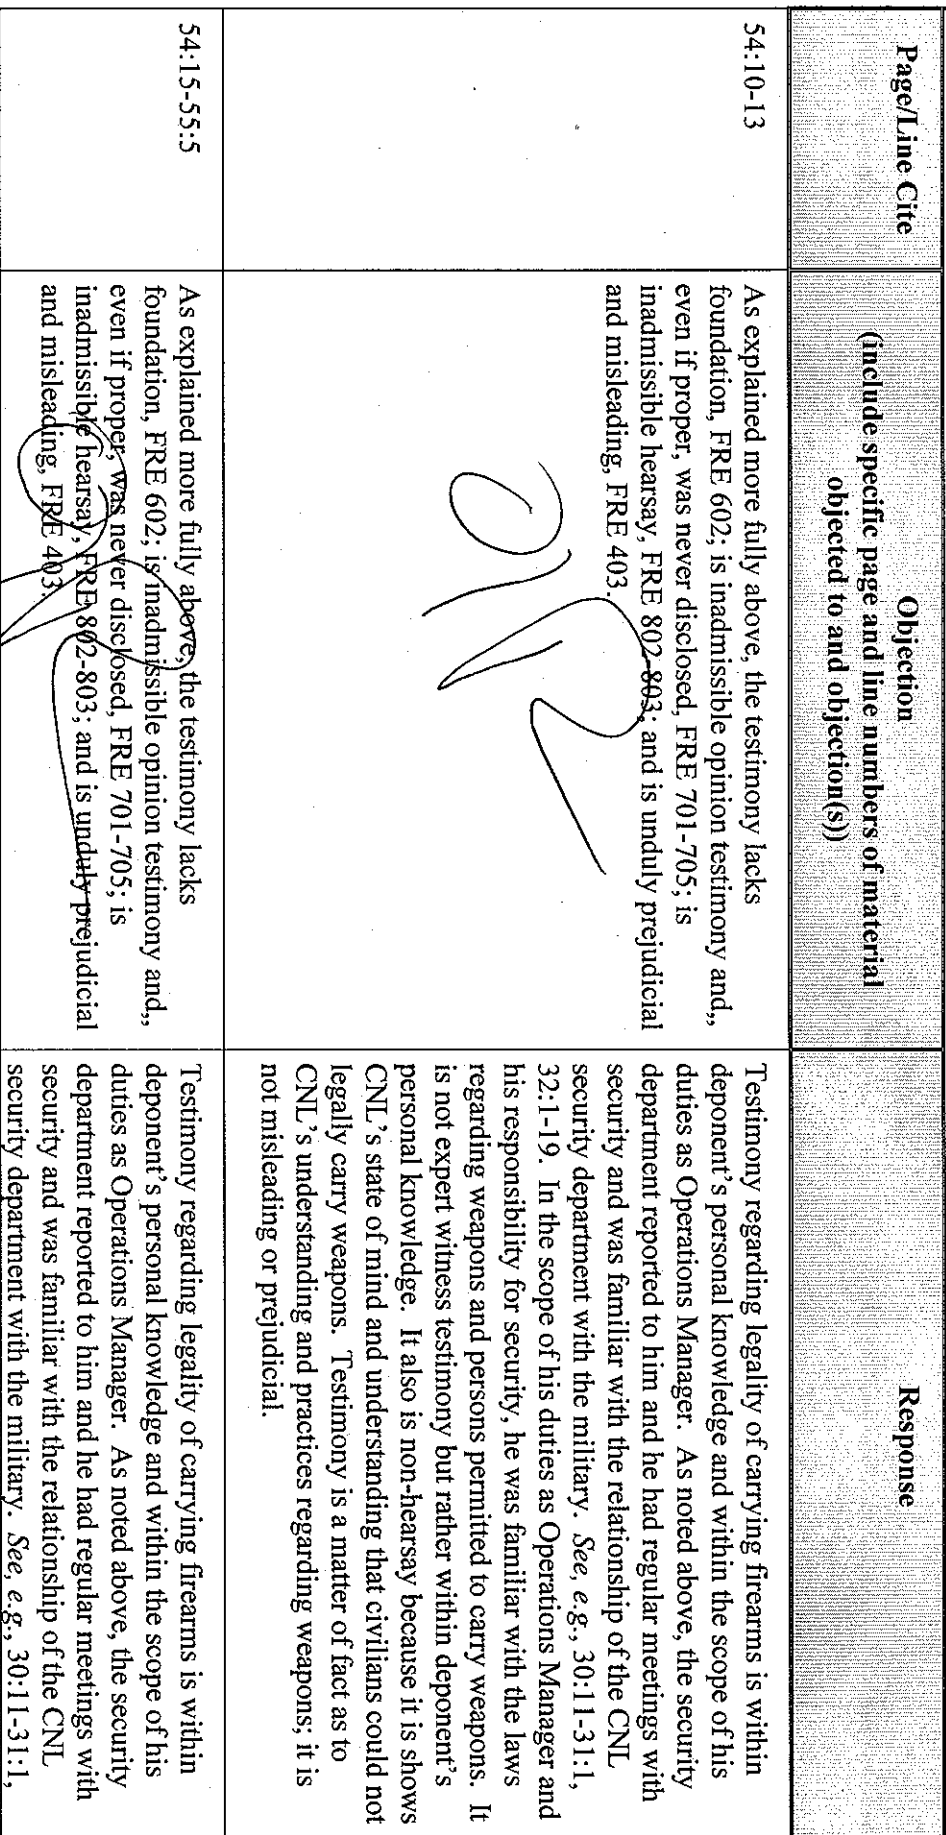 Page/Line Cite
Objection
(include specific page and line numbers of material
objected to and objection(s))
Response
54:10-13
As explained more fully above, the testimony lacks
foundation, FRE 602; is inadmissible opinion testimony and,,
even if proper, was never disclosed, FRE 701-705; is
inadmissible hearsay, FRE 802-803; and is unduly prejudicial
and misleading, FRE 403.
Testimony regarding legality of carrying firearms is within
deponent's personal knowledge and within the scope of his
duties as Operations Manager. As noted above, the security
department reported to him and he had regular meetings with
security and was familiar with the relationship of the CNL
security department with the military. See, e.g., 30:11-31:1,
32:1-19. In the scope of his duties as Operations Manager and
his responsibility for security, he was familiar with the laws
regarding weapons and persons permitted to carry weapons. It
is not expert witness testimony but rather within deponent's
personal knowledge. It also is non-hearsay because it is shows
CNL's state of mind and understanding that civilians could not
legally carry weapons. Testimony is a matter of fact as to
CNL's understanding and practices regarding weapons; it is
not misleading or prejudicial.
54:15-55:5
As explained more fully above, the testimony lacks
foundation, FRE 602; is inadmissible opinion testimony and,,
even if proper, was never disclosed, FRE 701-705; is
inadmissible hearsay, FRE 802-803; and is unduly prejudicial
and misleading, FRE 403.
Testimony regarding legality of carrying firearms is within
deponent's personal knowledge and within the scope of his
duties as Operations Manager. As noted above, the security
department reported to him and he had regular meetings with
security and was familiar with the relationship of the CNL
security department with the military. See, e.g., 30:11-31:1,